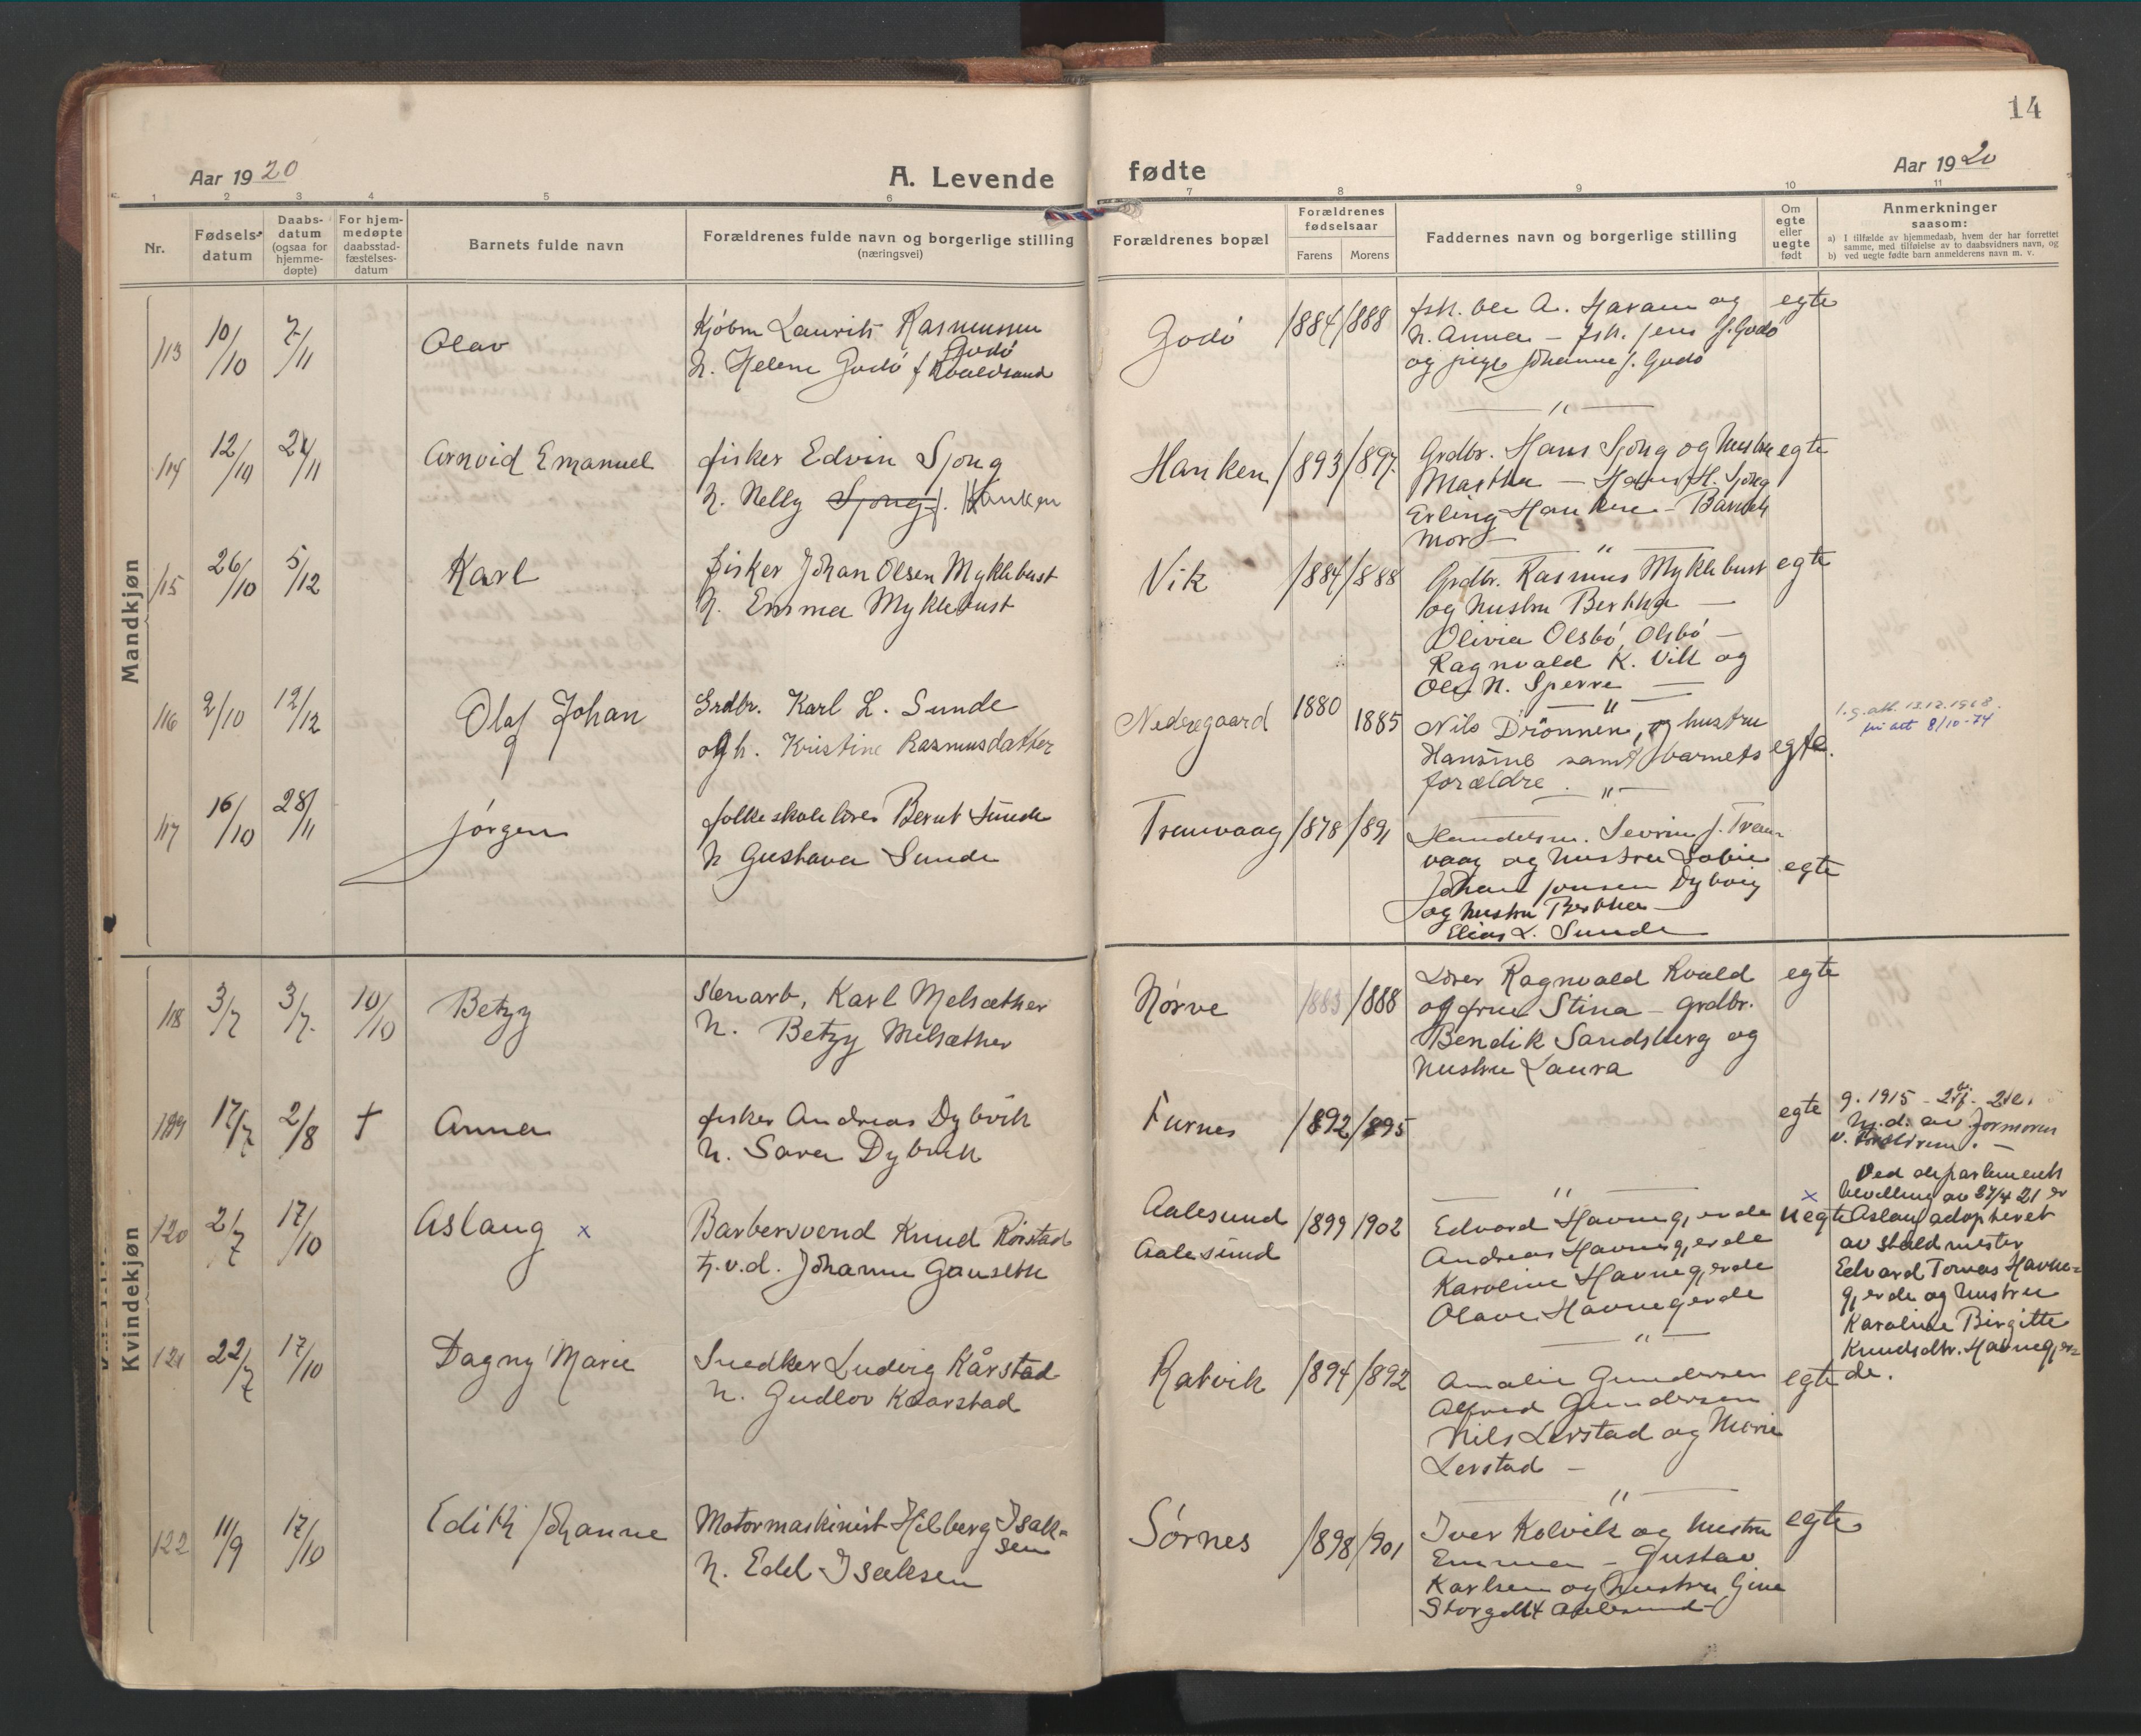 14
Aar 1920
A. Levende fødte
Aar 1920
1 2 3 4 5 6 7 8 9 10 11
Nr.
Fødsels-
datum
Daabs-
datum
(ogsaa for
hjemme-
døpte)
For hjem-
medøpte
daabsstad-
fæstelses-
datum
Barnets fulde navn
Forældrenes fulde navn og borgerlige stilling
(næringsvei)
Forældrenes bopæl
Forældrenes
fødselsaar
Farens Morens
Faddernes navn og borgerlige stilling
Om
egte
eller
uegte
født
Anmerkninger
saasom:
a) I tilfælde av hjemmedaab, hvem der har forrettet
samme, med tilføielse av to daabsvidners navn, og
b) ved uegte fødte barn anmelderens navn m. v.
Mandkjøn
113 10/10 7/11
Olav
Kjøbm Laurits Rasmussen
Godø
h. Helene Godø f Kvaldsund
Godø
1884 1888
fsk. Ole A. Haram og
h. Anna - fsk. Jens J. Godø
og pige Johanne J. Godø
egte
114 12/10 21/11
Arnvid Emanuel
fisker Edvin Sjong
h. Nelly Sjong f. Hanken
Hanken
1893 1897
Grdbr. Hans Sjong og hustru
Martha - Hans H. Sjong
Erling Hanken - Barnets
Mor -
egte
115 26/10 5/12
Karl
fisker Johan Olsen Myklebust
h. Emma Myklebust
Vik
1884 1888
Grdbr. Rasmus Myklebust
og hustru Bertha -
Olivia Olsbø, Olsbø -
Ragnvald K. Vik og
Ole N. Sperre -
egte
116 2/10 12/12
Olaf Johan
Grdbr. Karl L. Sunde
og h. Kristine Rasmusdatter
Nedregaard
1880 1885
Nils Drønnen, og hustru
Hansine samt barnets
forældre.
egte.
l.g.att. 12.12.1968.
8/10-74
117 16/10 28/11
Jørgen
folkeskolelærer Bernt Sunde
h Gustava Sunde
Tranvaag
1878 1891
Handelsm. Sevrin J. Tran-
vaag og hustru Sofie
Johan Jonsen Dybvig
og hustru Bertha -
Elias L. Sunde
egte
Kvindekjøn
118 3/7 3/7. 10/10
Betzy
Stenarb. Karl Melsæther
h. Betzy Melsæther
Nørve
1885 1888
Lærer Ragnvald Kvald
og frue Stina - grdbr.
Bendik Sandsberg og
hustru Laura
egte
119 17/7 2/8 †
Anna
fisker Andreas Dybvik
h. Sara Dybvik
Furnes
1892 1895
egte
g. 1915 -
hj.d. av jormoren
120 2/7 17/10
Aslaug x
Barbersvend Knud Rørstad
t.v.d. Johanne Gauseth
Aalesund
Aalesund
1899 1902
Edvard Havnegjerde
Andreas Havnegjerde
Karoline Havnegjerde
Olave Havnegjerde
x
uegte
Ved departements
bevilling av 27/4 21 er
Aslaug adopteret
av staldmester
Edvard Tomas Havne-
gjerde og hustru
Karoline Birgitte
Knudsdtr. Havnegjer-
de.
121 22/7 17/10
Dagny Marie
Snedker Ludvig Kårstad
h. Gudlov Kaarstad
Ratvik
1894 1892
Amalie Gundersen
Alfred Gundersen
Nils Lerstad og Marie
Lerstad -
egte
122 11/9 17/10
Edith Johanne
Motormaskinist Hilberg Isak-
sen
h. Edel Isaksen
Sørnes
1898 1901
Iver Kolvik og hustru
Emma - Gustav
Karlsen og hustru Gine
Storgt 14 Aalesund -
egte